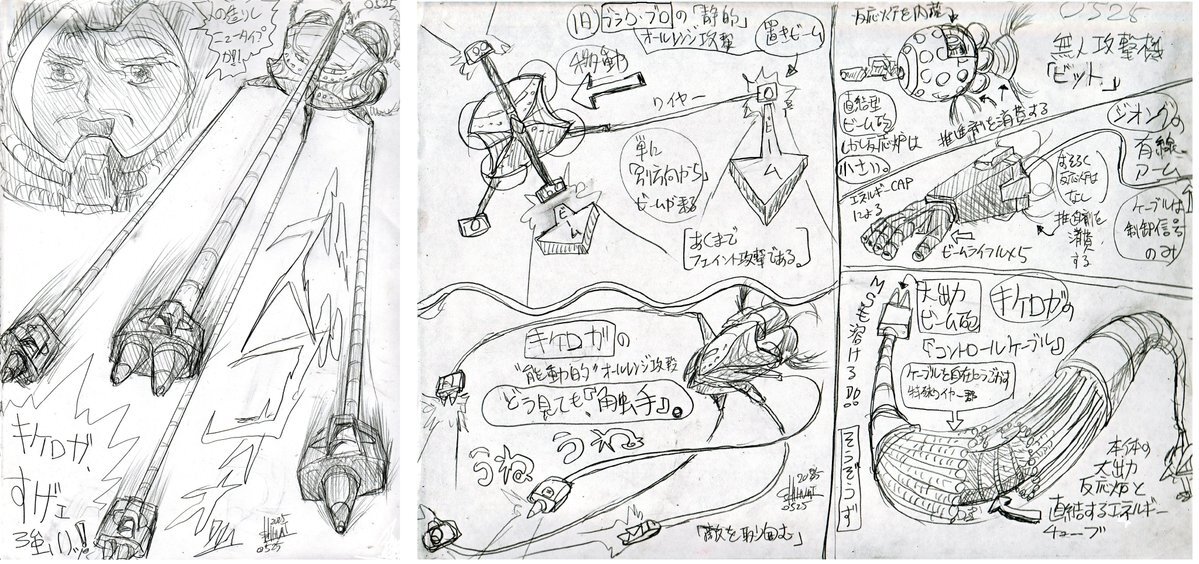 0525
ニュータイプ
がっ!
キケロガ、
すげェ
強いッ!
2025
0525
旧ブラウ・ブロの「静的」
オールレンジ攻撃
置きビーム
移動
ワイヤー
単に
「別方向から」
ビームが来る
ビーム
ビーム
あくまで
フェイント攻撃である。
キケロガの
"能動的"オールレンジ攻撃
どう見ても『触手』。
うねうね
「敵を取り囲む」
2025
0525
0525
反応炉を内蔵
無人攻撃機
「ビット」
直結型
ビーム砲
しかし反応炉は
小さい。
推進剤を消費する
ジオングの
有線
アーム
エネルギーCAP
による
おそらく
反応炉は
なし
推進剤を
消費
する
ケーブルは
制御信号
のみ
ビームライフル×5
MSも溶けるDO!!
大出力
ビーム砲
キケロガの
『コントロールケーブル』
ケーブルを自在にうごかす
特殊ワイヤー群
そうぞうず
本体の
大出力
反応炉と
直結するエネルギー
チューブ